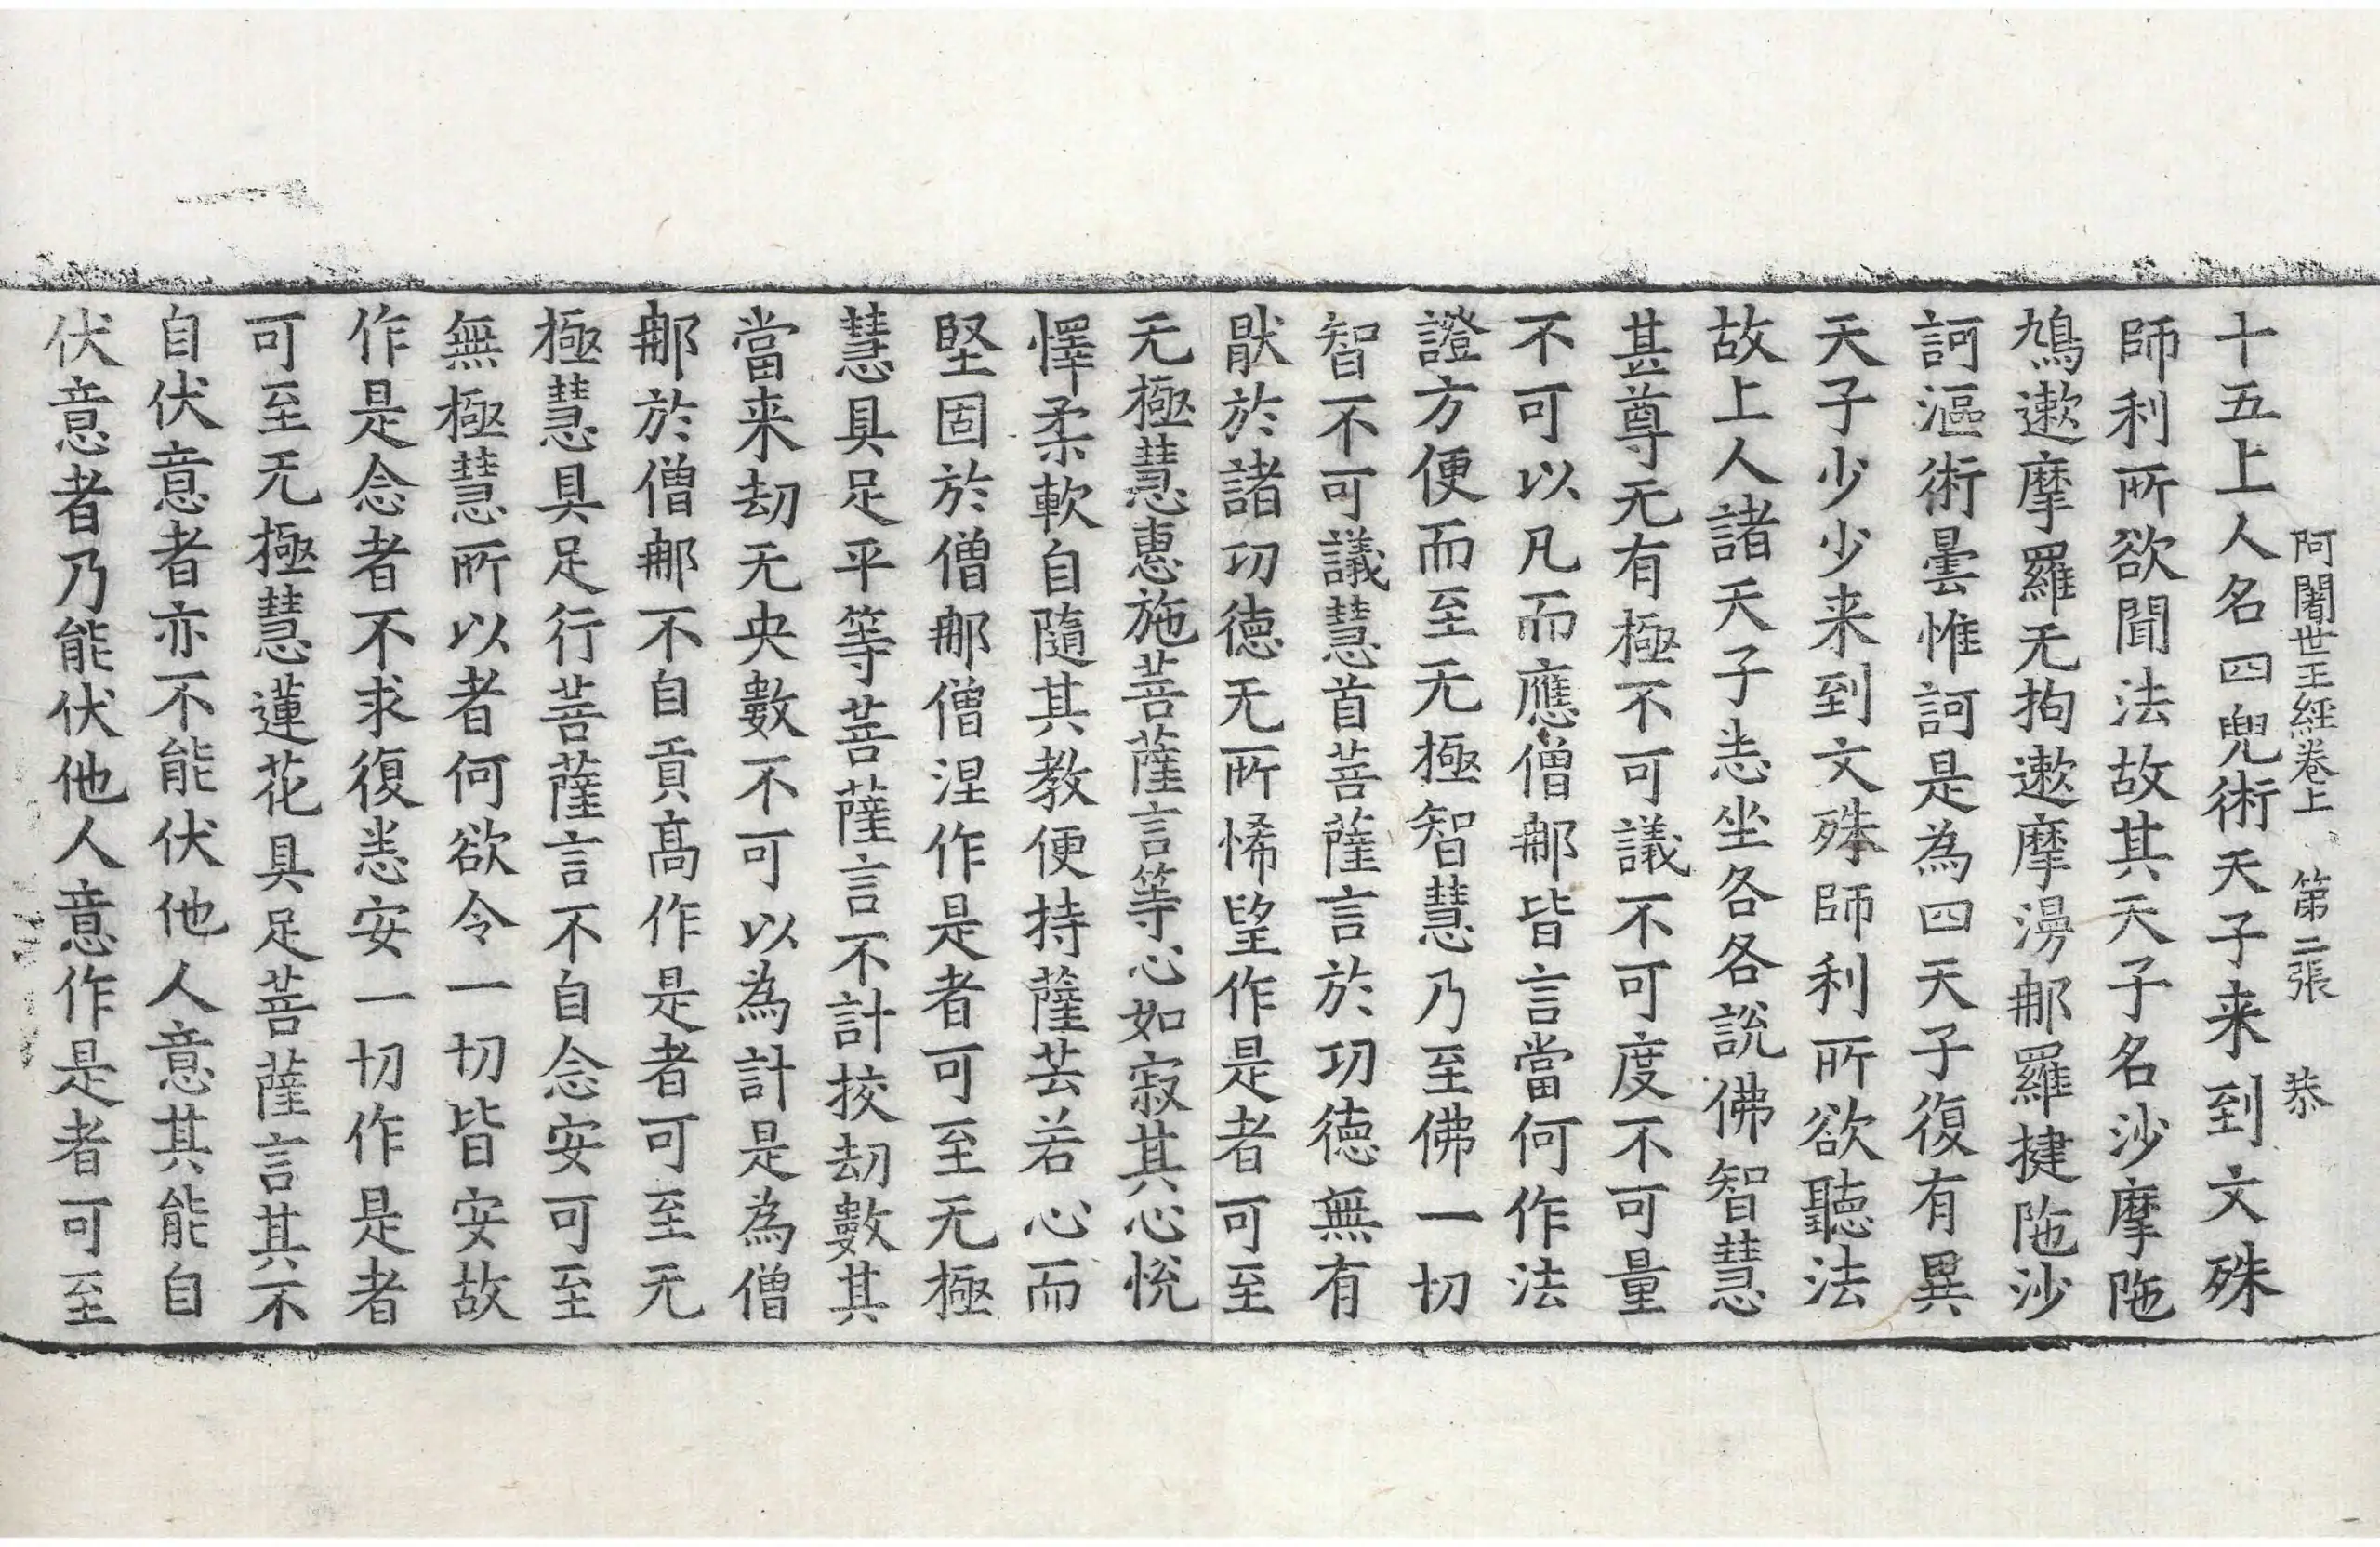 阿闍世王經卷上 第二張 恭
十五上人名四兜術天子来到文殊
師利所欲聞法故其天子名沙摩陁
鳩遬摩羅无拘遬摩漫㖠羅揵陁沙
訶漚術曇惟訶是為四天子復有異
天子少少来到文殊師利所欲聽法
故上人諸天子悉坐各各說佛智慧
甚尊无有極不可議不可度不可量
不可以凡而應僧㖠皆言當何作法
證方便而至无極智慧乃至佛一切
智不可議慧首菩薩言於功德無有
猒於諸功德无所悕望作是者可至
无極慧惠施菩薩言等心如寂其心恱
懌柔軟自隨其教便持薩芸若心而
堅固於僧㖠僧涅作是者可至无極
慧具足平等菩薩言不計挍劫數其
當来劫无央數不可以為計是為僧
㖠於僧㖠不自貢高作是者可至无
極慧具足行菩薩言不自念安可至
無極慧所以者何欲令一切皆安故
作是念者不求復悉安一切作是者
可至无極慧蓮花具足菩薩言其不
自伏意者亦不能伏他人意其能自
伏意者乃能伏他人意作是者可至